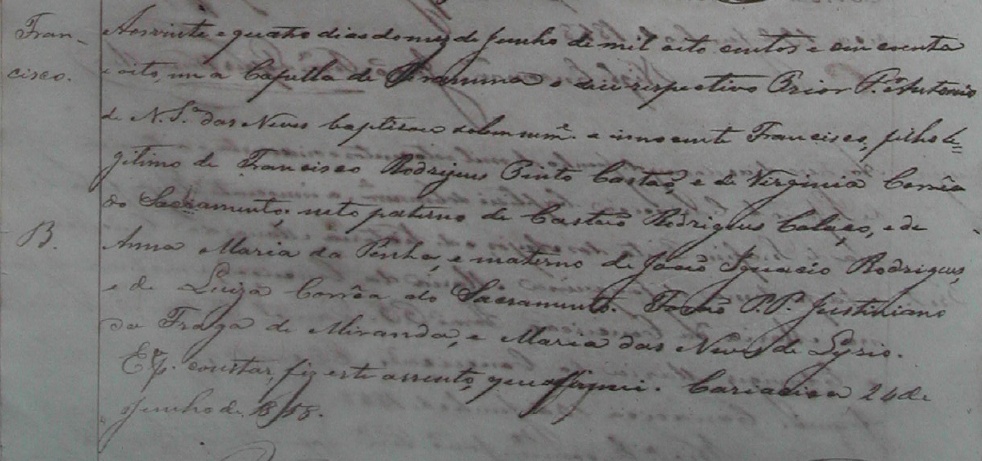 Fran-
cisco.
Aos vinte e quatro dias do mez de Junho de mil oito centos e cincoenta
e oito, na Capella de o seu respectivo Prior P.e Antonio
de N. S.ra das Neves baptisou solemnem.e a innocente Francisco, filho le=
gitimo de Francisco Rodrigues Pinto Castaõ, e de Virginia Corrêa
do Sacramento; neto paterno de Castaõ Rodrigues Calaço, e de
B.
Anna Maria da Penha, e materno de Joaõ Ignacio Rodrigues,
e de Luiza Corrêa do Sacramento. Foraõ P.P. Justiniano
da Fraga de Miranda, e Maria das Neves de Lyrio.
E p.a constar, fiz este assento, que assignei. Cariacica 24 de
Junho de 1858.